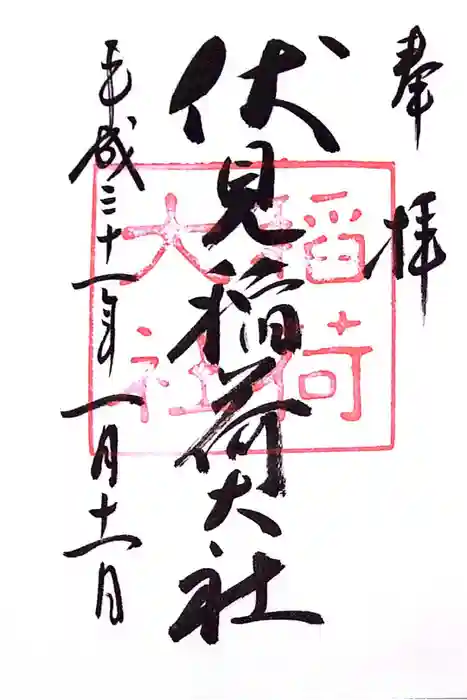 奉拝
伏見稲荷大社
平成三十一年一月十一日
稲荷
大社